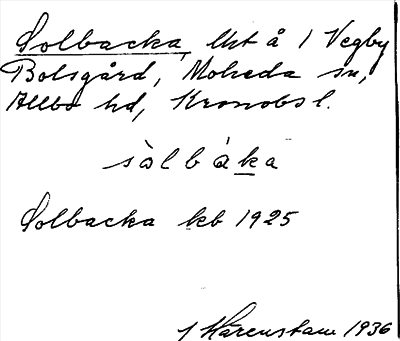 Solbacka, lht å 1 Vegby
Bolsgård, Moheda sn,
Allbo hd, Kronobs l.
sòlbàka
Solbacka kb 1925
J Kärenstam 1936